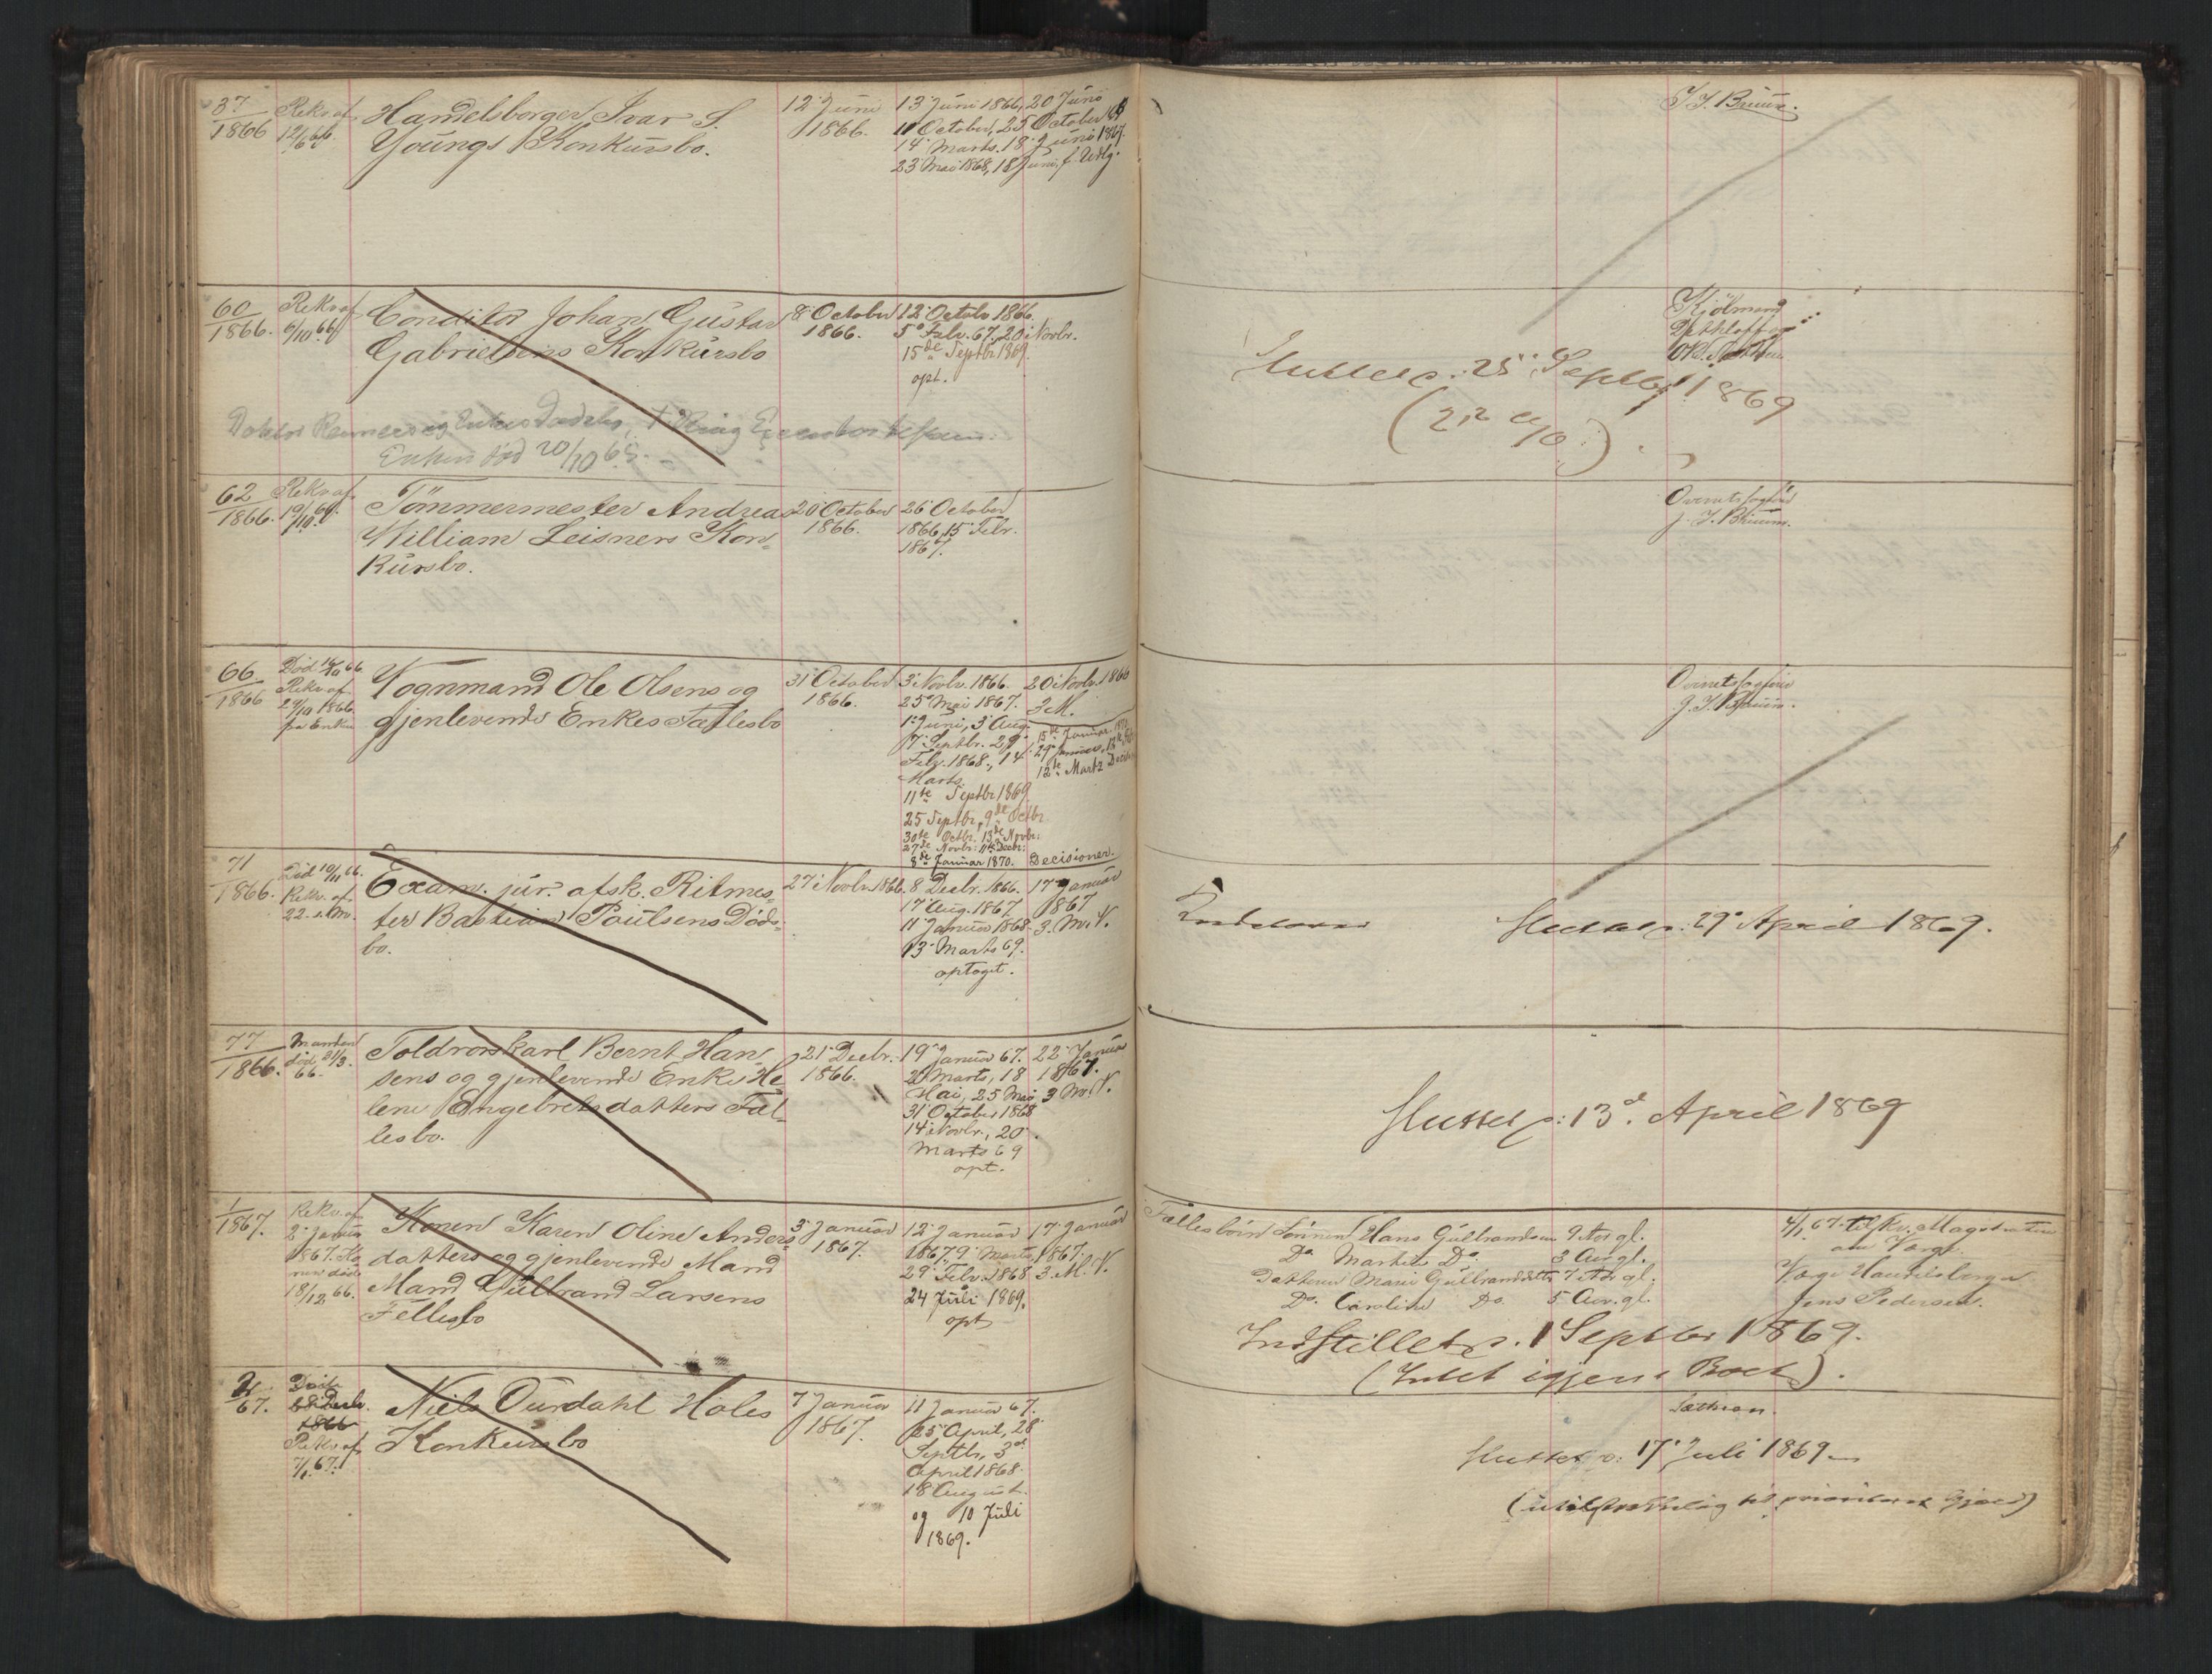 37
1866
Rekv. af
12/6 66.
Handelsborger Ivar S.
Youngs Konkursbo.
12' Juni
1866.
13' Juni 1866, 20' Juni
11 October, 25 October
14' Marts. 18' Juni 1867.
23' Mai 1868, 18 Juni, f. Udlg.
J. J. Bruun.
60
1866.
Rekv. af
6/10 66
Conditor Johan Gustav
Gabrielsens Konkursbo
8' October
1866.
12' Octobr 1866.
5' Febr. 67, 20' Novbr.
15de Septbr 1869.
opt.
Kjölmand
Sluttet p. 25' Septbr 1869
Enken død 20/10 65.
62
1866.
Rekv. af
19/10 66.
Tömmermester Andreas
William Leisners Kon-
kursbo.
20' October
1866.
26' October
1866, 15' Febr.
1867.
J. J. Bruun.
66
1866
Død 16/10 66
Rekv. af
29/10 1866.
fra Enken
Vognmand Ole Olsens og
gjenlevende Enkes Fællesbo
31' October
1866.
3' Novbr. 1866.
25' Mai 1867.
1' Juni, 3' Aug.
7' Septbr. 29'
Febr. 1868., 14'
Marts.
11te Septbr 1869.
25 Septbr, 9de Octbr
30te Octbr. 13de Novbr:
27de Novbr: 11te Decbr:
8de Januar 1870.
20' Novbr. 1866
3 M.
15de Januar
29' Januar,
12te Marts
Decisioner.
J. J. Bruun.
71
1866.
Død 10/11 66.
Rekv. af
22. s. M.
Exam. jur. afsk. Ritmes-
ter Bastian Poulsens Døds-
bo.
27' Novbr 1866.
8' Decbr. 1866.
17' Aug. 1867
11' Januar 1868.
13' Marts 69.
optaget.
17' Januar
1867
3. M. V.
Sluttet p. 29' April 1869.
77
1866.
Manden
død 21/3.
66.
Toldrorskarl Bernt Han-
sens og gjenlevende Enke He-
lene Engebretsdatters Fæl-
lesbo.
21' Decbr.
1866.
19' Januar 67.
20 Marts, 18
Mai, 25 Mai
31' October 1868
14' Novbr., 20'
Marts 69
opt.
22' Januar
1867.
3 M. V.
Sluttet p: 13de April 1869
1
1867.
Rekv. af
2' Januar
1867. Ko
nen død
18/12 66.
Konen Karen Oline Anders-
datters og gjenlevende Mand
Mand Gulbrand Larsens
Fellesbo
3' Januar
1867.
12' Januar
1867, 9' Marts,
29' Febr. 1868
24 Juli 1869.
opt
17' Januar
1867.
3. M. V.
Fællesbörn Sönnen Hans Gulbrandsen 9 Aar gl.
Do. Martin Do. 3 Aar gl.
Datteren Marie Gulbrandsdtr 7 Aar gl.
Do. Caroline Do. 5 Aar. gl.
4/1 67. til Kr. Magistraten
om Værge.
Værge Handelsborger
Jens Pedersen.
Indstillet p. 1 Septbr 1869.
(Intet igjen i Boet).
2/
67.
Død
1866
Rekv. af
7/1 67.
Niels Ourdahl Holes
Konkursbo
7' Januar
1867.
11 Januar 67.
25' April, 28'
Septbr, 3de
April 1868.
18 August.
og 10 Juli
1869.
Sluttet p. 17' Juli 1869
(utilstrækkelig til prioriteret Gjæld)